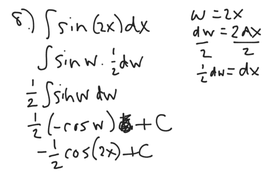 8.) ∫ sin (2x) dx
∫ sin w · 1/2 dw
1/2 ∫ sin w dw
1/2 (-cos w) + C
-1/2 cos (2x) + C
w = 2x
dw/2 = 2dx/2
1/2 dw = dx